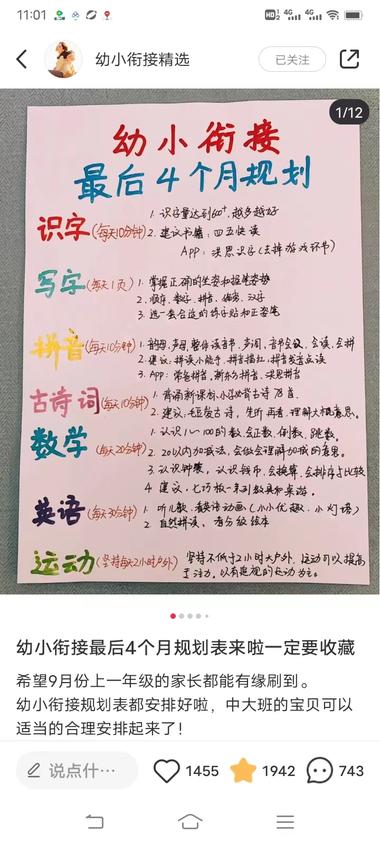 11:01
幼小衔接精选
已关注
1/12
幼小衔接
最后4个月规划
识字(每天10分钟)
1. 识字量达到60+，越多越好
2. 建议书籍：四五快读
APP：洪恩识字(去掉游戏环节)
写字(每天1页)
1. 掌握正确的坐姿和握笔姿势
2. 顺序：数字、拼音、偏旁、汉字
3. 选一套合适的练字帖和正姿笔
拼音(每天10分钟)
1. 韵母、声母、整体认读音节、声调、音节会认、会读、会拼
2. 建议：拼读小能手、拼音描红、拼音发音点读
3. APP：常爸拼音、斯芬方拼音、洪恩拼音
古诗词(每天10分钟)
1. 背诵新课标小学必背古诗75首
2. 建议：毛豆爱古诗，先听再看，理解大概意思。
数学(每天20分钟)
1. 认识1～100的数，会正数、倒数、跳数。
2. 20以内加减法，会做会理解加减的意思。
3. 认识钟表，认识钱币，会换算，会排序与比较
4 建议：七巧板一系列教具和桌游。
英语(每天30分钟)
1 听儿歌，看英语动画(小小优趣、小灯塔)
2 自然拼读、看分级绘本
运动(坚持每天2小时户外)
坚持不低于2小时大户外，运动可以提高
专注力，以有兴趣的运动为主。
幼小衔接最后4个月规划表来啦一定要收藏
希望9月份上一年级的家长都能有缘刷到。
幼小衔接规划表都安排好啦，中大班的宝贝可以
适当的合理安排起来了！
说点什…
1455
1942
743